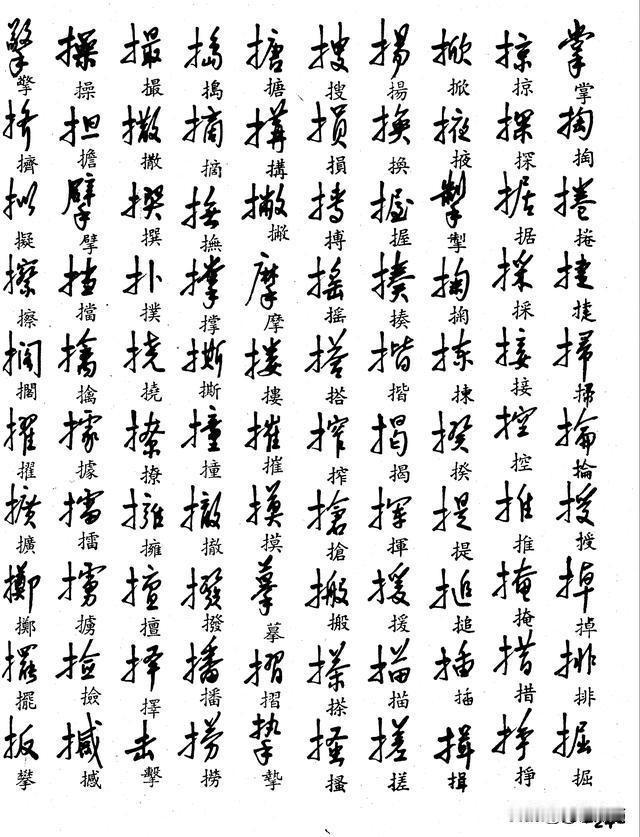 掌掏捲捷掃掄授掉排掘
掠探据採接控推掩措掙
掀掖掣掬揀揆提搥插揖
揚換握揍揩揭揮援描搓
搜損搏搖搭搾搶搬搽搔
搪搆撇摩摟摧摸摹摺摯
搗摘撫撑撕撞撤撥播撈
撮撒撰撲撓撩擁擅擇擊
操擔擘擋擒據擂擄撿撼
擎擠擬擦擱擢擴擲擺攀